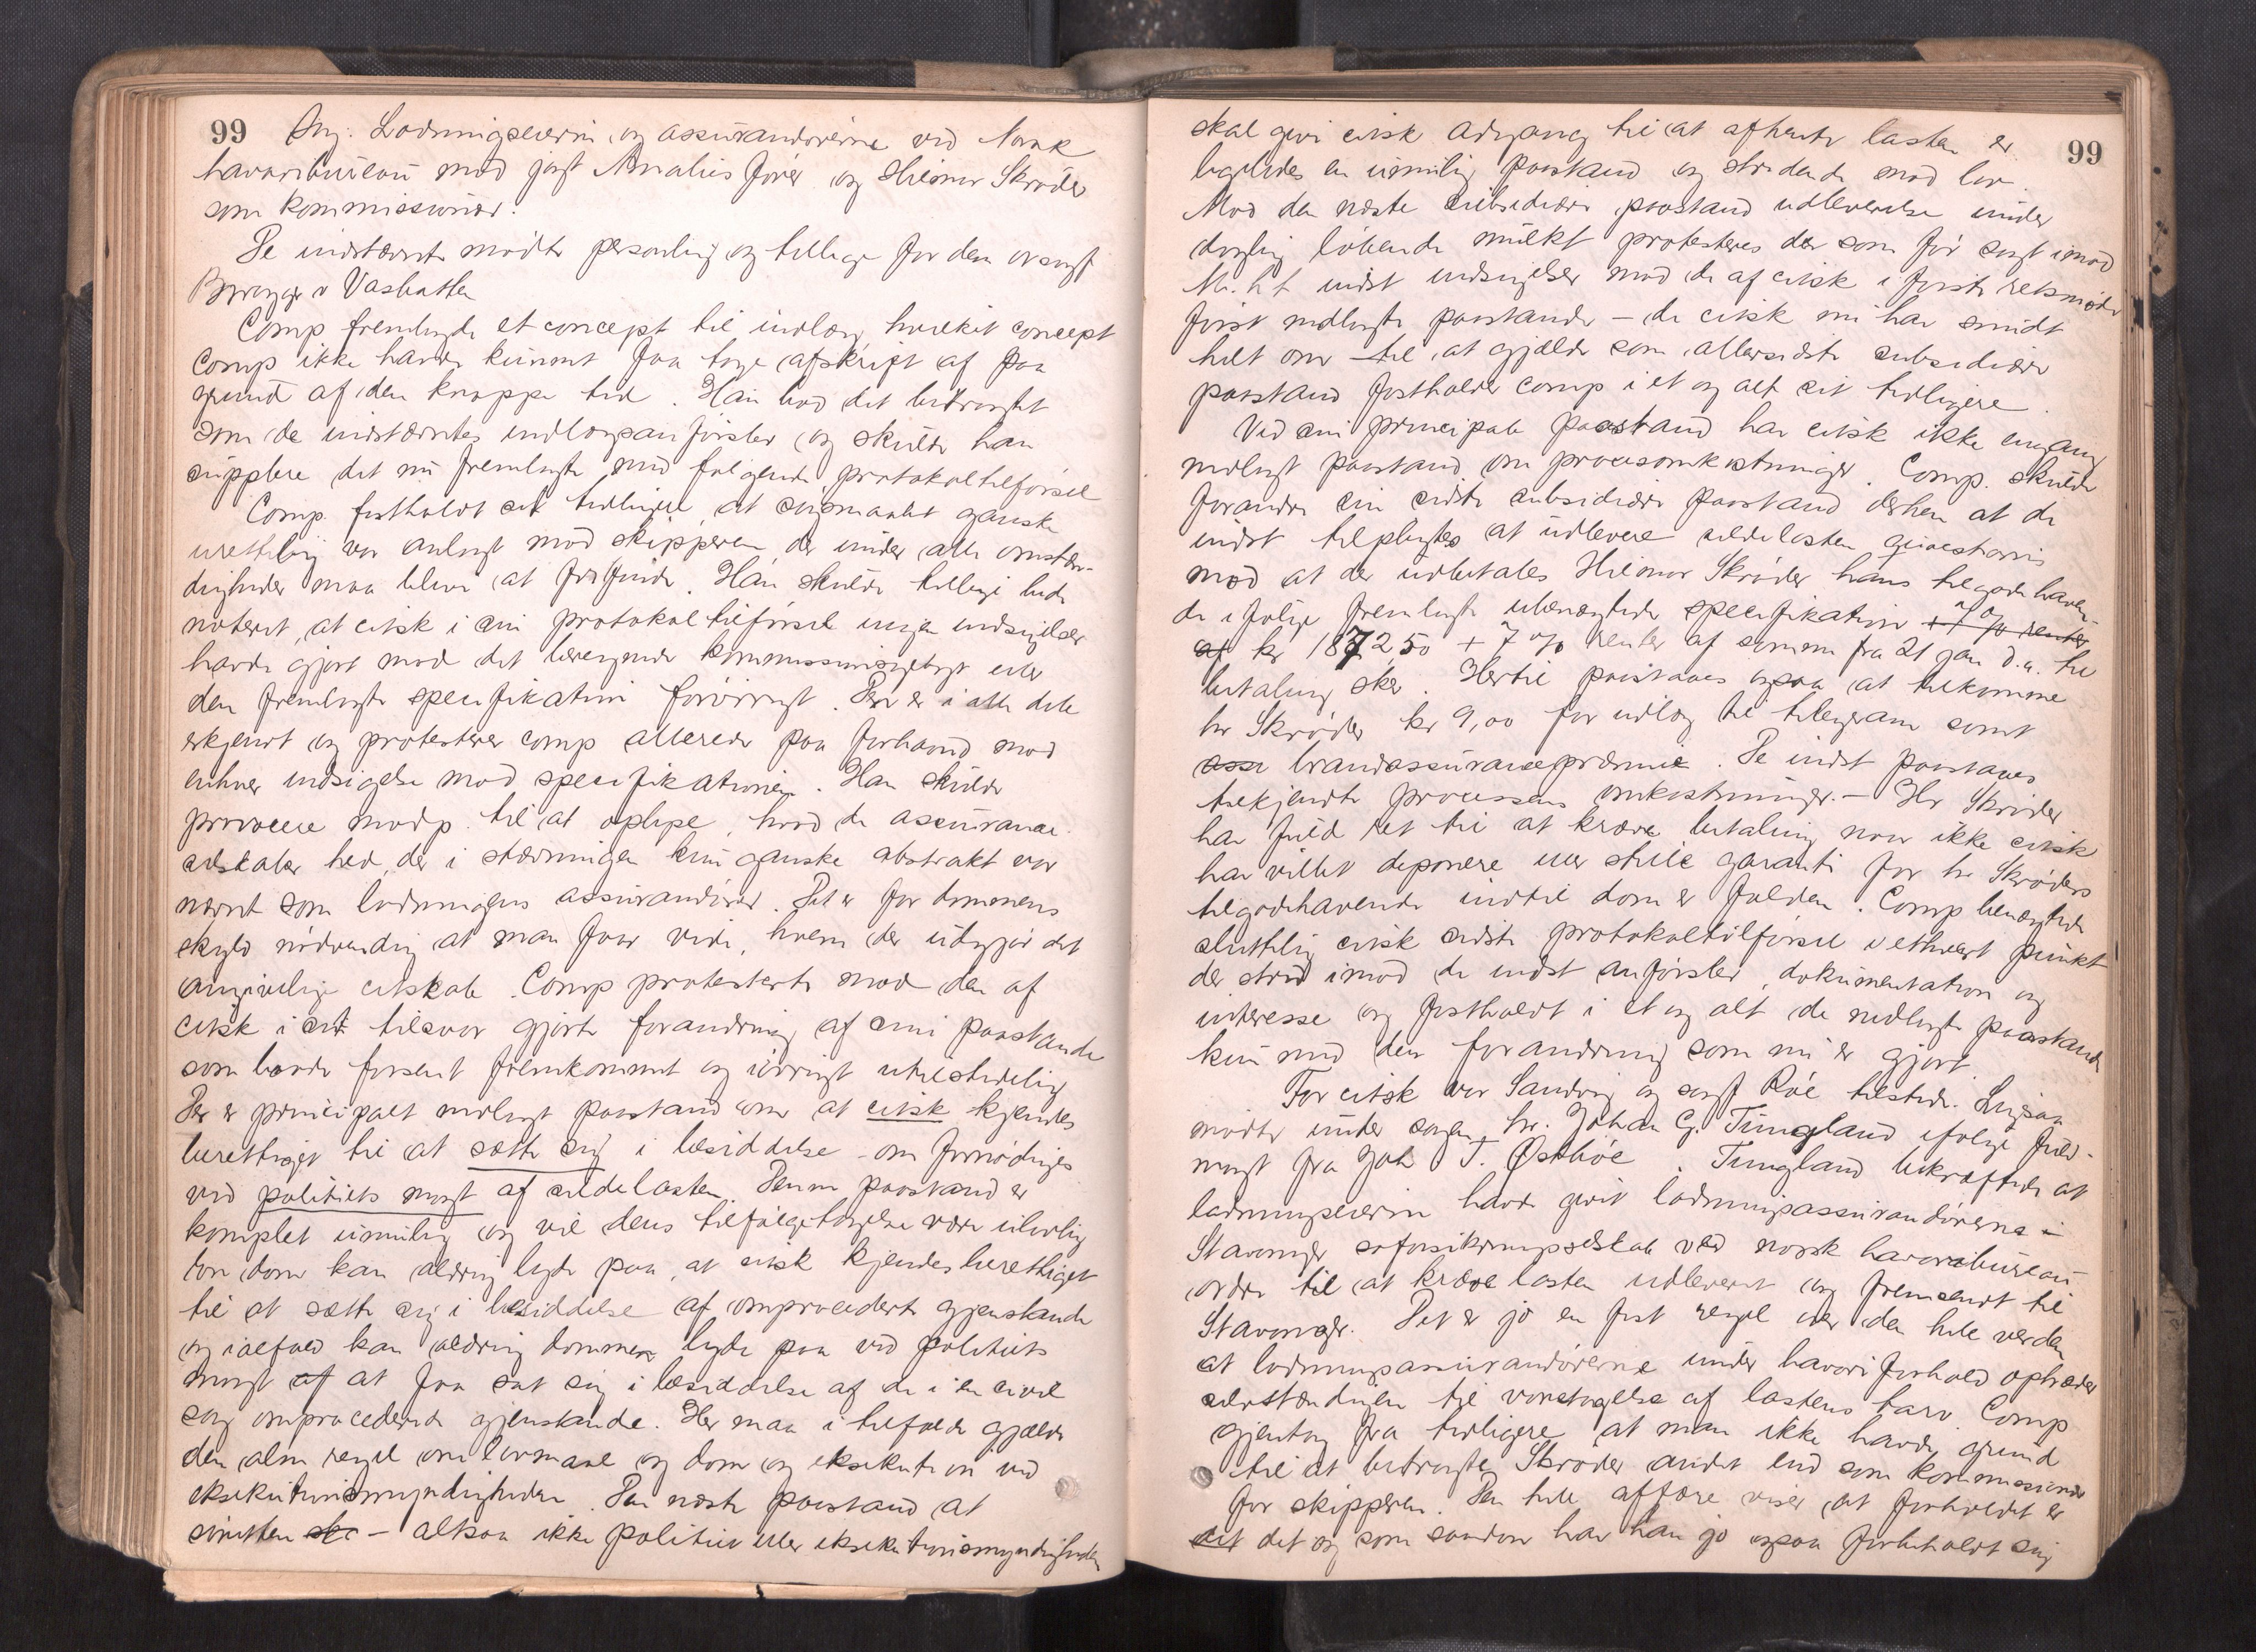 99 Sag: Ladningseierne og assurandørerne ved Norsk
havaribureau mod jagt Amalies fører og Hielmar Skrøder
som kommissionær.
De indstævnte mødte personlig og tillige for den
Comp fremlagde et concept til indlæg, hvilket concept
Comp ikke havde kunnet faa tage afskrift af paa
grund af den knappe tid. Han bad det betragtet
som de indstævntes indlægsanførsler og skulde han
supplere det nu fremlagte med følgende protokoltilførsel
Comp. fastholdt sit tidligere, at søgsmaalet ganske
urettelig var anlagt mod skipperen, der under alle omstæn-
digheder maa blive at frifinde. Han skulde tillige bede
noteret, at citsk i sin protokoltilførsel ingen indsigelser
havde gjort mod det beregnede kommissionsgebyr eller
den fremlagte specifikation forøvrigt. Den er i alle dele
erkjendt og protesterer comp allerede paa forhaand mod
enhver indsigelse mod specifikationen. Han skulde
provocere modp. til at oplyse, hvad de assurance-
selskaber hed, der i stævningen kun ganske abstrakt var
nævnt som ladningens assurandører. Det er for dommens
skyld nødvendig at man faar vide, hvem der udgjør det
angivelige citskab. Comp protesterte mod den af
citsk i sit tilsvar gjorte forandring af sine paastande
som havde forsent fremkommet og iøvrigt utilstedelig
Der er principalt nedlagt paastand om at citsk kjendes
berettiget til at sætte sig i besiddelse - om fornødiges
ved politiets magt af sildelasten. Denne paastand er
komplet umulig og vil dens tilfølgetagelse være ulovlig
En dom kan aldrig lyde paa, at citsk kjendes berettiget
til at sætte sig i besiddelse af omprocederte gjenstande
og ialfald kan aldrig dommen lyde paa ved politiets
magt af at faa sat sig i besiddelse af de i en civil
sag omprocederede gjenstande. Her maa i tilfælde gjælde
den alm regel om lovmaal og dom og eksekution ved
eksekutionsmyndigheden. Den næste paastand at
- altsaa ikke politiet eller eksekutionsmyndigheden
99
skal give citsk adgang til at afhente lasten er
ligeledes en umulig paastand og stridende mod lov.
Mod den næste subsidiære paastand udleverelse under
daglig løbende mulkt protesteres der som før sagt imod
M. h. t. indst indsigelser mod de af citsk i første retsmøde
først nedlagte paastande - de citsk nu har snudt
helt om til at gjælde som allersidste subsidiære
paastand fastholder comp i et og alt sit tidligere.
Ved sin principale paastand har citsk ikke engang
nedlagt paastand om procesomkostninger. Comp. skulde
forandre sin sidste subsidiære paastand derhen at de
indst tilpligtes at udlevere sildelasten qvæstionis
mod at der udbetales Hielmar Skrøder hans tilgodehaven-
de ifølge fremlagte ubenægtede specifikation + 7 % renter
af kr 1872 50 + 7 % renter af summen fra 21 jan d.a. til
betaling sker. Hertil paastaaes ogsaa at tilkomme
hr Skrøder kr 9,00 for udlæg til telegram samt
assu brandassurancepræmie. De indst paastaaes
tilkjendt processens omkostninger. - Hr Skrøder
har fuld ret til at kræve betaling naar ikke citsk
har villet deponere eller stille garanti for hr Skrøders
tilgodehavende indtil dom er falden. Comp benægtede
sluttelig citsk sidste protokoltilførsel i ethvert punkt
der stred imod de indst anførsler, dokumentation og
interesse og fastholdt i et og alt de nedlagte paastande
kun med den forandring som nu er gjort.
For citsk var Sandvig og sagf Roe tilstede.
mødte under sagen hr. Johan G. Tungland ifølge fuld-
magt fra Joh T. Østbøe. Tungland bekræftede at
ladningseieren havde givet ladningsassurandørerne i
Stavanger søforsikringsselskab ved norsk havaribureau
ordre til at kræve lasten udleveret og fremsendt til
Stavanger. Det er jo en fast regel over den hele verden
at ladningsassurandørerne under havariforhold optræder
selvstændigen til varetagelse af lastens tarv. Comp
gjentog fra tidligere at man ikke havde grund
til at betragte Skrøder andet end som kommissionær
for skipperen. Den hele affære viser at forholdet er
det det og som saadan har han jo ogsaa forbeholdt sig